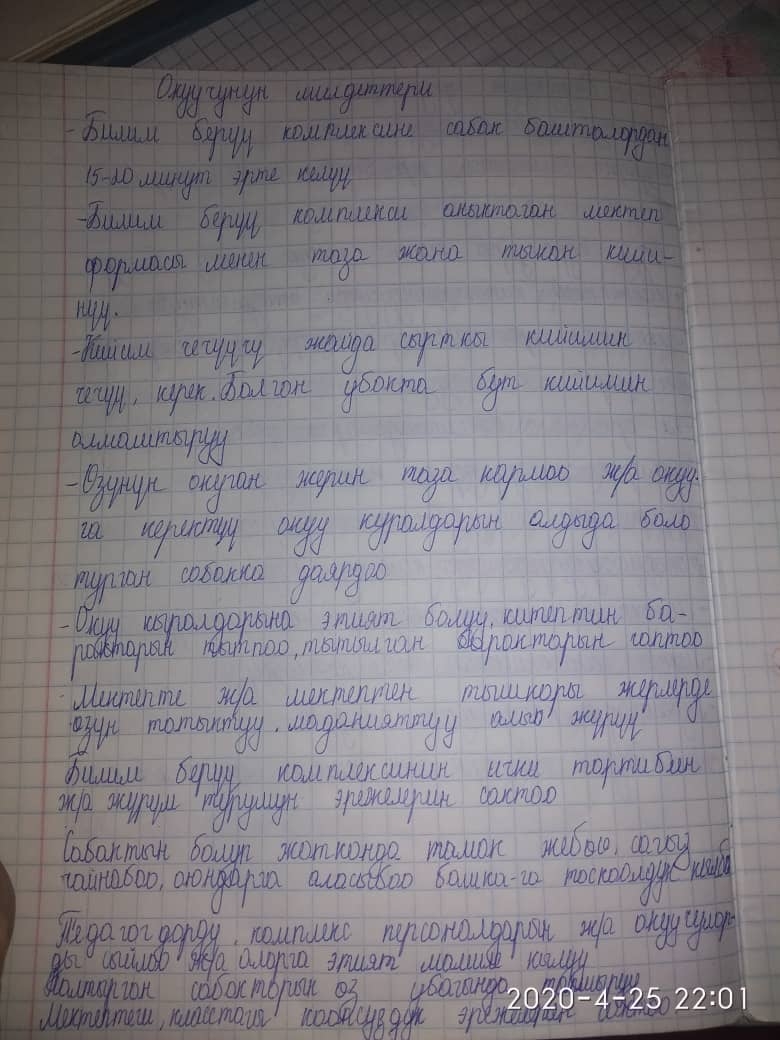 Окуучунун милдеттери
-Билим берүү комплексине сабак башталардан
15-20 минут эрте келүү
-Билим берүү комплекси аныктаган мектеп
формасы менен таза жана тыкан кийи-
нүү.
-Кийим чечүүчү жайда сырткы кийимин
чечүү, керек. Болгон убакта бут кийимин
алмаштыруу
-Озунун окуган жерин таза кармоо ж/а окуу-
га керектүү окуу куралдарын алдыда боло
турган сабакка даярдоо
-Окуу кыралдарына этият болуу, китептин ба-
рактарын тытпоо, тытылган барактарын чаптоо
-Мектепте ж/а мектептен тышкары жерлерде
озун татыктуу, маданияттуу алып журуу
Билим берүү комплексинин ички тартибин
ж/а журум турумун эрежелерин сактоо
Сабактын болуп жатканда тамак жебоо, сагыз
чайнабоо, оюндарга алаксыбоо башка-га тоскоолдук кылбоо
Педагогдорду, комплекс персоналдарын ж/а окуучулар-
ды сыйлоо ж/а аларга этият мамиле кылуу
Калтырган сабактарын оз убагында тапшыруу
Мектептеги, класстагы коопсуздук эрежелерин сактоо
2020-4-25 22:01